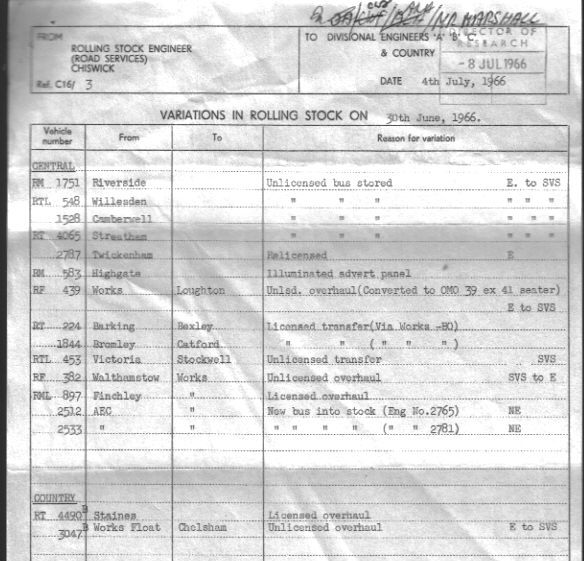 NR MARSHALL
FROM ROLLING STOCK ENGINEER (ROAD SERVICES) CHISWICK
Ref. C16/ 3
TO DIVISIONAL ENGINEERS 'A' 'B' 'C' & COUNTRY
DIRECTOR OF RESEARCH
- 8 JUL 1966
DATE 4th July, 1966
VARIATIONS IN ROLLING STOCK ON 30th June, 1966.
Vehicle number From To Reason for variation
CENTRAL
RM 1751 Riverside Unlicensed bus stored E. to SVS
RTL 548 Willesden " " " " " "
1528 Camberwell " " " " " "
RT 4065 Streatham " " " " " "
2787 Twickenham Relicensed E
RM 583 Highgate Illuminated advert panel
RF 439 Works Loughton Unlsd. overhaul(Converted to OMO 39 ex 41 seater)
E to SVS
RT 224 Barking Bexley Licensed transfer(Via Works -BO)
1844 Bromley Catford " " ( " " " )
RTL 453 Victoria Stockwell Unlicensed transfer SVS
RF 382 Walthamstow Works Unlicensed overhaul SVS to E
RML 897 Finchley " Licensed overhaul
2512 AEC " New bus into stock (Eng No.2765) NE
2533 " " " " " " (" " 2781) NE
COUNTRY
RT 4490 B Staines Licensed overhaul
3047 B Works Float Chelsham Unlicensed overhaul E to SVS